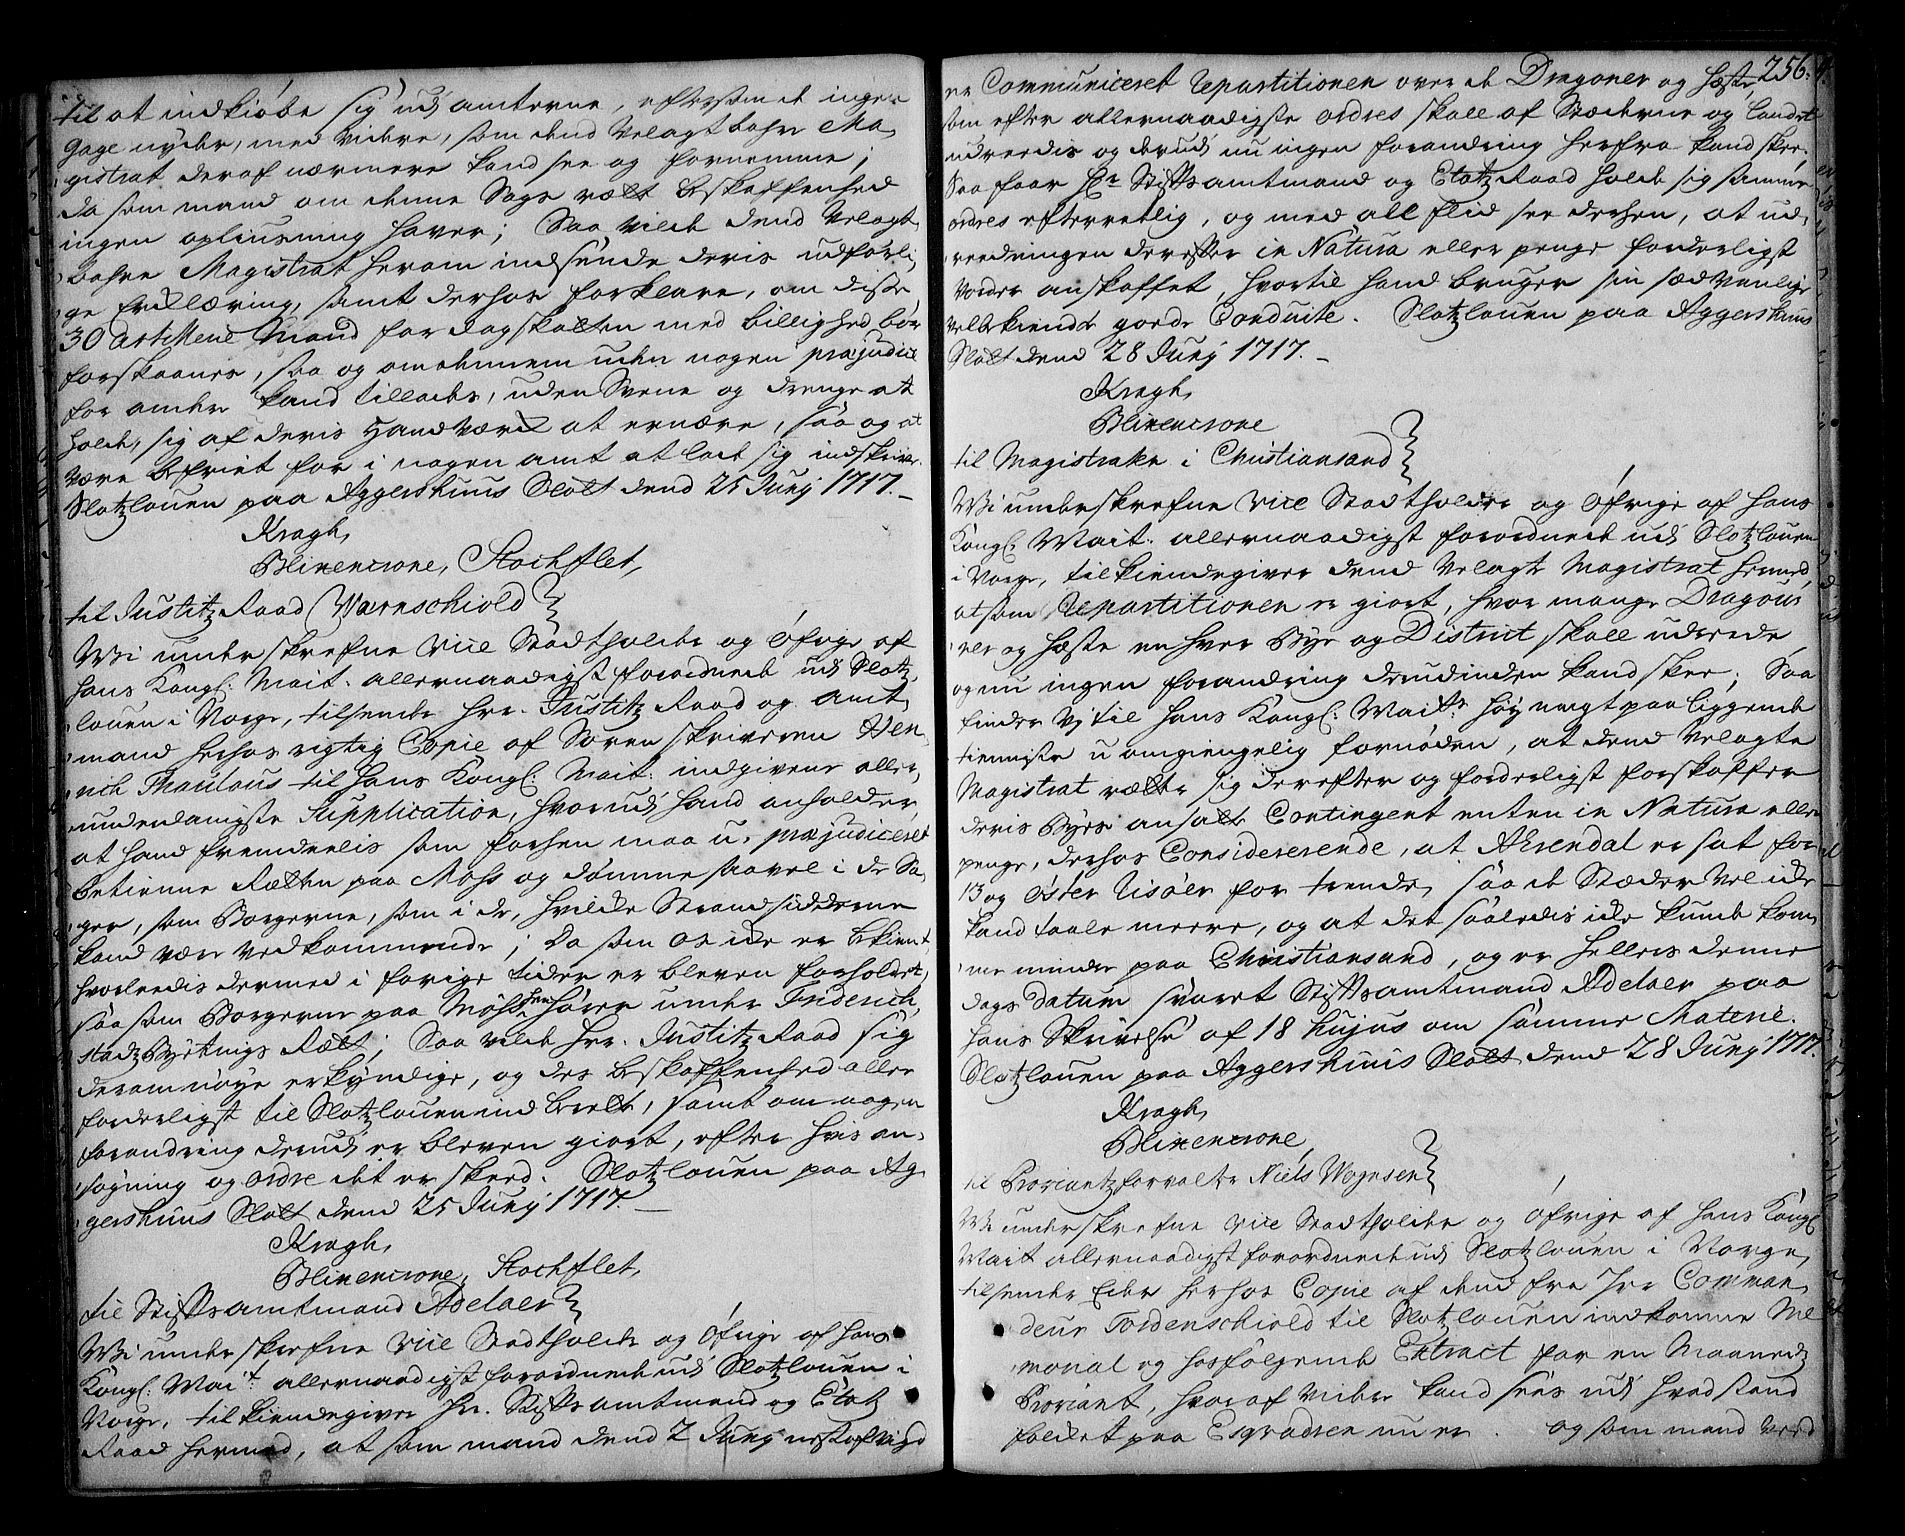 til at indkiøbe sig udj amterne, eftersom de ingen
Gage nyder, med videre, som dend Velagtbahre Ma,
gistrat deraf nærmere kand see og fornemme;
da som mand om denne Sags rætte beskaffenhed
ingen opliusning haver; Saa vilde dend Velagt,
bahre Magistrat herom indsende deris udførli,
ge erklæring, samt derhos forklare, om disse
30 Artillerie Mand for dagskatten med billighed bør
forskaanes, saa og om dennem uden nogen præjudice
for andre kand tillades, uden Svene og drenge at
holde, sig af deris Handværck at ernære, saa og at
være befriet for i nogen amt at lade sig indskrive.
Slotzlouen paa Aggershuus Slott dend 25 Junij 1717.
Kragh,
Blixencrone, Stochflet,
til Justitz Raad Wærnschiold
Wi underskrefne Vice Stadtholder og øfrige af
Hans Kongl: Mait: allernaadigst forordnede udj Slotz,
louen i Norge, tilsender Hr. Justitz Raad og Amt,
mand herhos rigtig Copie af Sorenskriveren Hen,
rich Thaulous til Hans Kongl: Mait: indgivene aller,
underdanigste Supplication, hvorudj hand anholder,
at hand fremdeelis som forhen maa u, præjudiceret
betienne Rætten paa Moss og dømme saavel i de Sa,
ger, som Borgerne, som i de, hvilcke Strandsidderne
kand være vedkommende; Da som os icke er bekient,
hvorledis dermed i forige tider er bleven forholdet,
saasom Borgerne paa Moss henhører under Friderich,
stadz Byetings Rætt; Saa vilde Hr. Justitz Raad sig
derom nøye erkyndige, og des beskaffenhed aller
forderligst til Slotzlouen indberette, samt om nogen
forandring derudj er bleven giort, efter hvis an,
søgning og ordre det er skeed. Slotzlouen paa Ag,
gershuus Slott dend 25 Junij 1717.
Kragh,
Blixencrone, Stochflet,
til Stiftsamtmand Adelaer
Wi underskrefne Vice Stadtholder og øfrige af Hans
Kongl: Mait: allernaadigst forordnede udj Slotzlouen i
Norge, tilkiendegiver Hr. Stiftsamtmand og Etatz
Raad hermed, at som mand dend 2 Junij nestafvigt
256.
er Communiceret Repartitionen over de Dragoner og Hæste,
som efter allernaadigste ordres skall af Stæderne og Landet
udreedis og derudj nu ingen forandring herfra kand skee,
Saa faar Hr Stiftsamtmand og Etatz Raad holde sig samme
ordres efterretlig, og med all flid see derhen, at ud,
reedningen derefter in Natura eller penge forderligst
vorder anskaffet, hvortil hand bruger sin sædvanlige
velbekiendte goede Conduite. Slotzlouen paa Aggershuus
Slott dend 28 Junij 1717.
Kragh,
Blixencrone
til Magistraten i Christiansand
Wi underskrefne Vice Stadtholder og øfrige af Hans
Kongl: Mait: allernaadigst forordnede udj Slotzlouen
i Norge, tilkiendegiver dend Velagte Magistrat hermed,
at som Repartitionen er giort, hvor mange Dragou,
ner og Hæste enhver Bye og District skall udreede
og nu ingen forandring derudinden kand skee; Saa
finder vj til Hans Kongl: Maits: høy magtpaaliggende
tienniste uomgiengelig fornøden, at dend Velagte
Magistrat rætter sig derefter og forderligst forskaffer
deris Byes ansatte Contingent enten in Natura eller
penge, derhos Considererende, at Arendal er sat for
13 og Øster Risøer for trende, saa de Stæder vel icke
kand taale meere, og at det saaledis icke kunde kom,
me mindre paa Christiansand, og er hellers denne
dags datum svaret Stiftsamtmand Adelaer paa
hans Skrivelse af 18 hujus om samme Materie.
Slotzlouen paa Aggershuus Slott dend 28 Junij 1717.
Kragh,
Blixencrone,
til Proviantzforvalter Niels Wognsen
Wi underskrefne Vice Stadtholder og øfrige af Hans Kongl
Mait allernaadigst forordnede udj Slotzlouen i Norge,
tilsender Eder herhos Copie af dend fra Hr Comman,
deur Tordenschiold til Slotzlouen indkomne Me
morial og hosfølgende Extract for en Maanedz
Proviant, hvoraf videre kand sees udj hvad stand
folcket paa Esqvadren nu er. og som mand ved